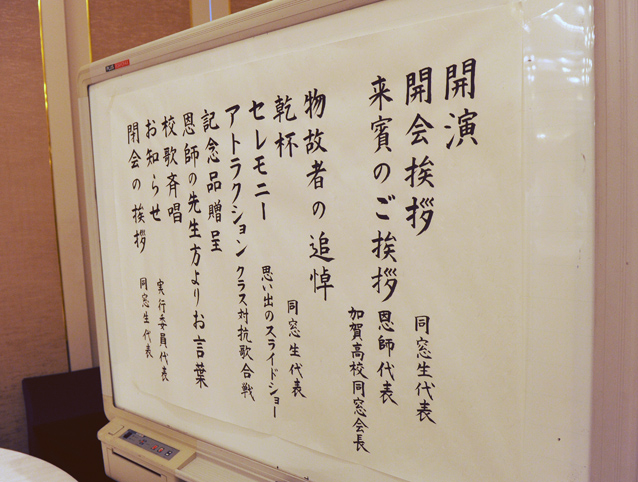 開演
開会挨拶 同窓生代表
来賓のご挨拶 恩師代表
加賀高校同窓会長
物故者の追悼
乾杯 同窓生代表
セレモニー 思い出のスライドショー
アトラクション クラス対抗歌合戦
記念品贈呈
恩師の先生方よりお言葉
校歌斉唱
お知らせ 実行委員代表
閉会の挨拶 同窓生代表